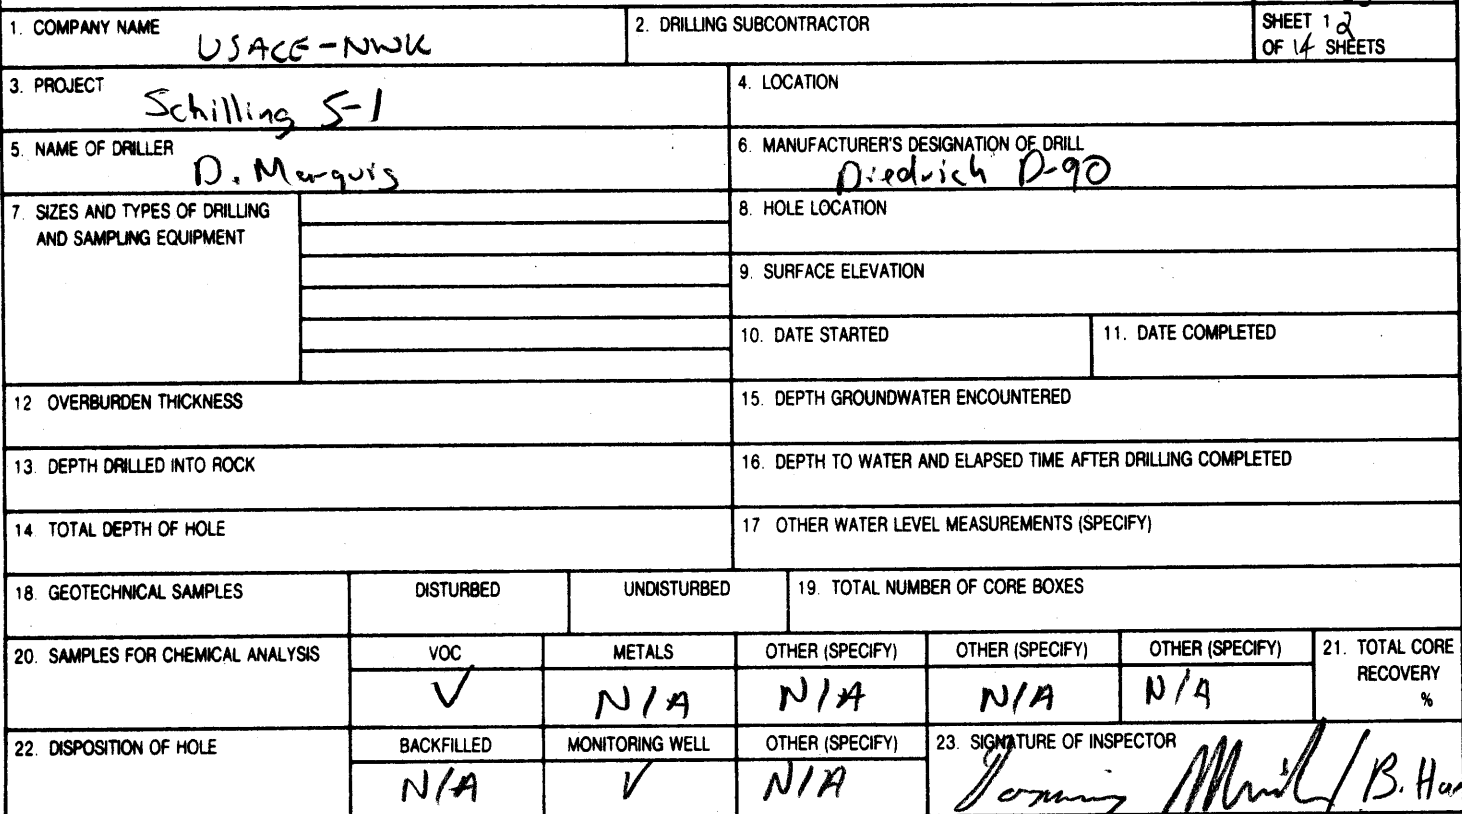 1. COMPANY NAME
USACE-NWK
2. DRILLING SUBCONTRACTOR
SHEET 1 2
OF 14 SHEETS
3. PROJECT
Schilling S-1
4. LOCATION
5. NAME OF DRILLER
D. Marquis
6. MANUFACTURER'S DESIGNATION OF DRILL
Diedrich D-90
7. SIZES AND TYPES OF DRILLING
AND SAMPLING EQUIPMENT
8. HOLE LOCATION
9. SURFACE ELEVATION
10. DATE STARTED
11. DATE COMPLETED
12 OVERBURDEN THICKNESS
15. DEPTH GROUNDWATER ENCOUNTERED
13. DEPTH DRILLED INTO ROCK
16. DEPTH TO WATER AND ELAPSED TIME AFTER DRILLING COMPLETED
14. TOTAL DEPTH OF HOLE
17 OTHER WATER LEVEL MEASUREMENTS (SPECIFY)
18. GEOTECHNICAL SAMPLES
DISTURBED
UNDISTURBED
19. TOTAL NUMBER OF CORE BOXES
20. SAMPLES FOR CHEMICAL ANALYSIS
VOC
METALS
OTHER (SPECIFY)
OTHER (SPECIFY)
OTHER (SPECIFY)
21. TOTAL CORE
RECOVERY
%
✓
N/A
N/A
N/A
N/A
22. DISPOSITION OF HOLE
BACKFILLED
MONITORING WELL
OTHER (SPECIFY)
23. SIGNATURE OF INSPECTOR
N/A
✓
N/A
/ B. Ha